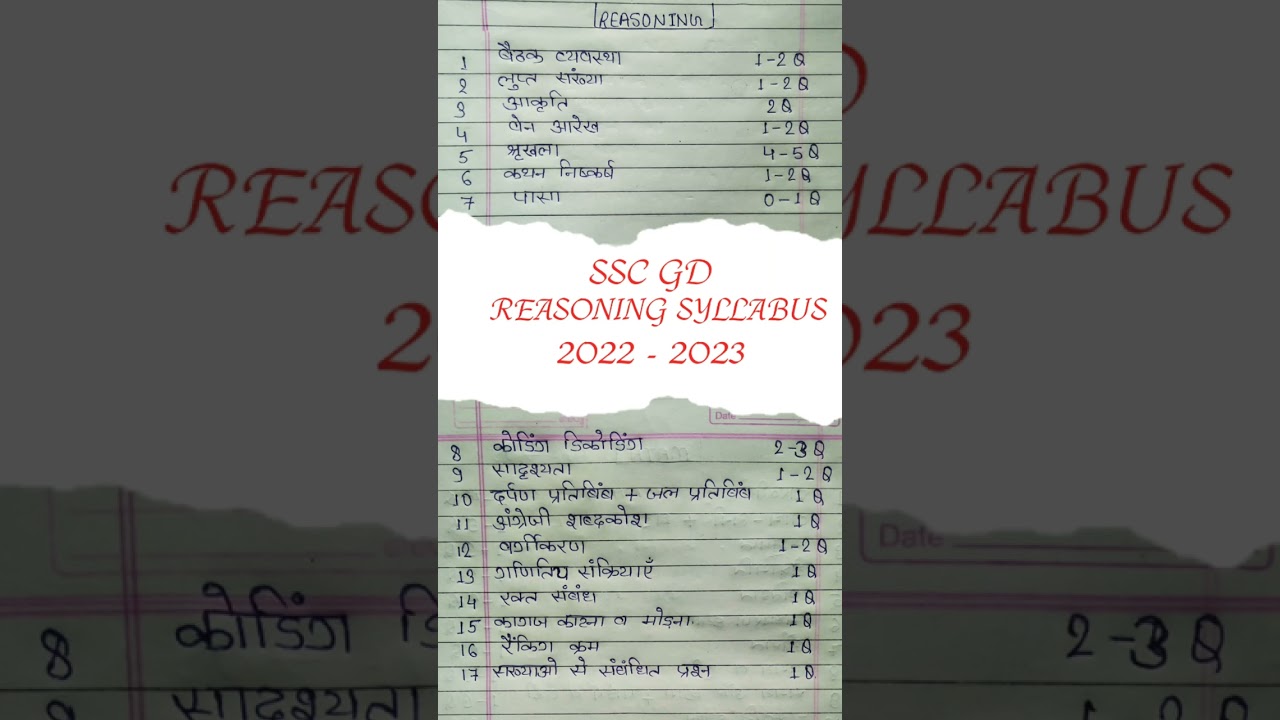 REASONING
1 बैठक व्यवस्था 1-2 Q
2 लुप्त सख्या 1-2 Q
3 आकृति 2 Q
4 वेन आरेख 1-2 Q
5 श्रृखला 4-5 Q
6 कथन निष्कर्ष 1-2 Q
7 पासा 0-1 Q
SSC GD
REASONING SYLLABUS
2022 - 2023
Date
8 कोडिंग डिकोडिंग 2-3 Q
9 सादृश्यता 1-2 Q
10 दर्पण प्रतिबिंब + जल प्रतिबिंब 1 Q
11 अंग्रेजी शब्दकोश 1 Q
12 वर्गीकरण 1-2 Q
13 गणितिय संक्रियाएँ 1 Q
14 रक्त संबंध 1 Q
15 कागज काटना व मोड़ना 1 Q
16 रैंकिंग क्रम 1 Q
17 सख्याओ से संबंधित प्रश्न 1 Q